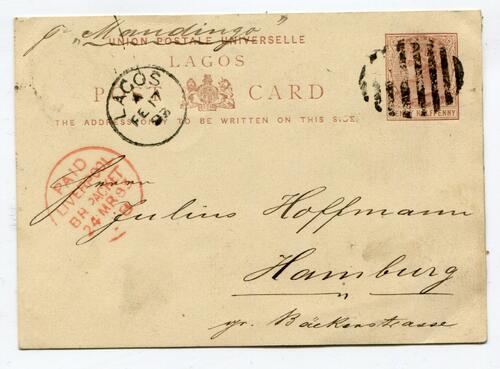 pr "Mandingo"
UNION POSTALE UNIVERSELLE
LAGOS
POST CARD
THE ADDRESS ONLY TO BE WRITTEN ON THIS SIDE.
HALFPENNY
LAGOS
FE 17
93
PAID
LIVERPOOL
BR PACKET
24 MR 93
Herrn
Julius Hoffmann
Hamburg
gr. Bäckerstrasse